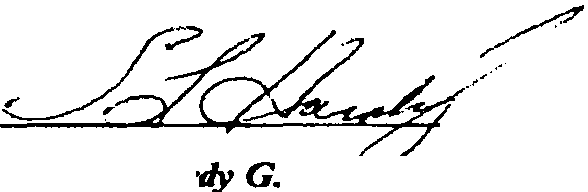 S L Hardy
dy G.